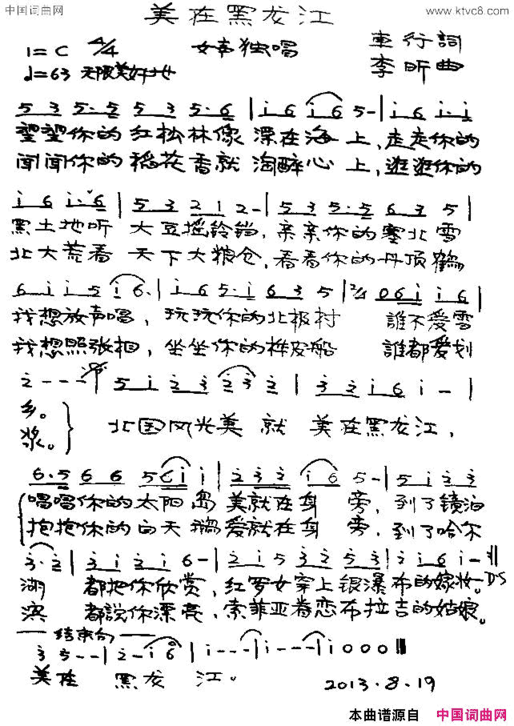 中国词曲网
www.ktvc8.com
美在黑龙江
1=C 4/4 女声独唱 车行詞
♩=63 无限美好地 李昕曲
5 3 5·5 5 3 5·6 | i 6 i 6 5 - | i 6 i·i
望望你的红松林像漂在海上,走走你的
闻闻你的稻花香就淘醉心上,逛逛你的
i 6 i·6 | 5 3 2 1 2 - | 5 3 5·5 6 3 5 |
黑土地听 大豆摇铃铛,亲亲你的塞北雪
北大荒看 天下大粮仓,看看你的丹顶鹤
6 i i 5 i 6· | i 6 5·i 6 3 5 | 2/4 0 6 i i 6 |
我想放声唱,玩玩你的北极村 誰不爱雪
我想照张相,坐坐你的桦皮船 誰都爱划
2 - - - | 5 i 2 3 2 3 2 | 3 2 i 6 i - |
乡。
浆。
北国风光美 就 美在黑龙江,
6·5 6 6 5 6 i i | 2 3 3 i 6 5 - | 5 i 2 3
唱唱你的太阳岛 美就在身 旁,到了镜泊
抱抱你的白天鹅爱就在身 旁,到了哈尔
3·2 | 3 i 2 i 6 - | 2 i 5 3 2 5 3 | 2 i 6 i - :|| D.S
湖 都把你欣赏,红罗女穿上银瀑布的嫁妆。
滨 都說你漂亮,索菲亚眷恋布拉吉的姑娘。
结束句
3 5 - - | 2 - i 6 | i - - - | i - - - | i 0 0 0 ||
美在 黑龙 江。
2013.8.19
本曲谱源自 中国词曲网